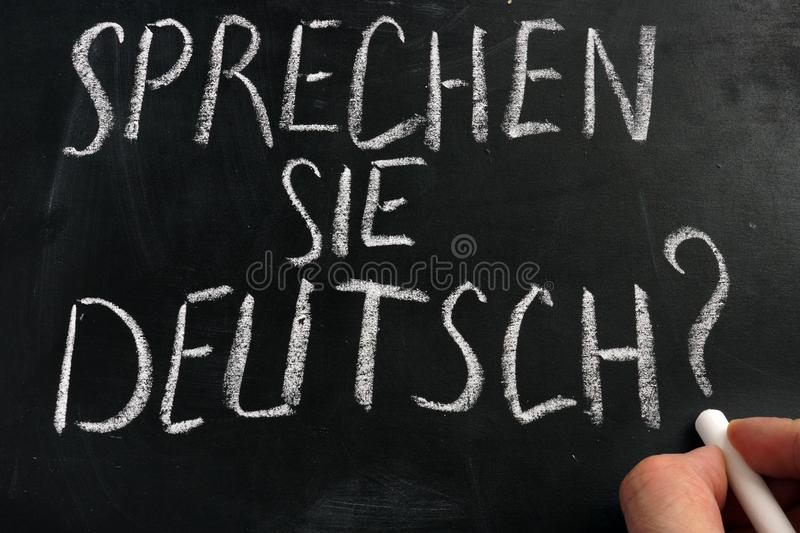 SPRECHEN
SIE
DEUTSCH?
dreamstime